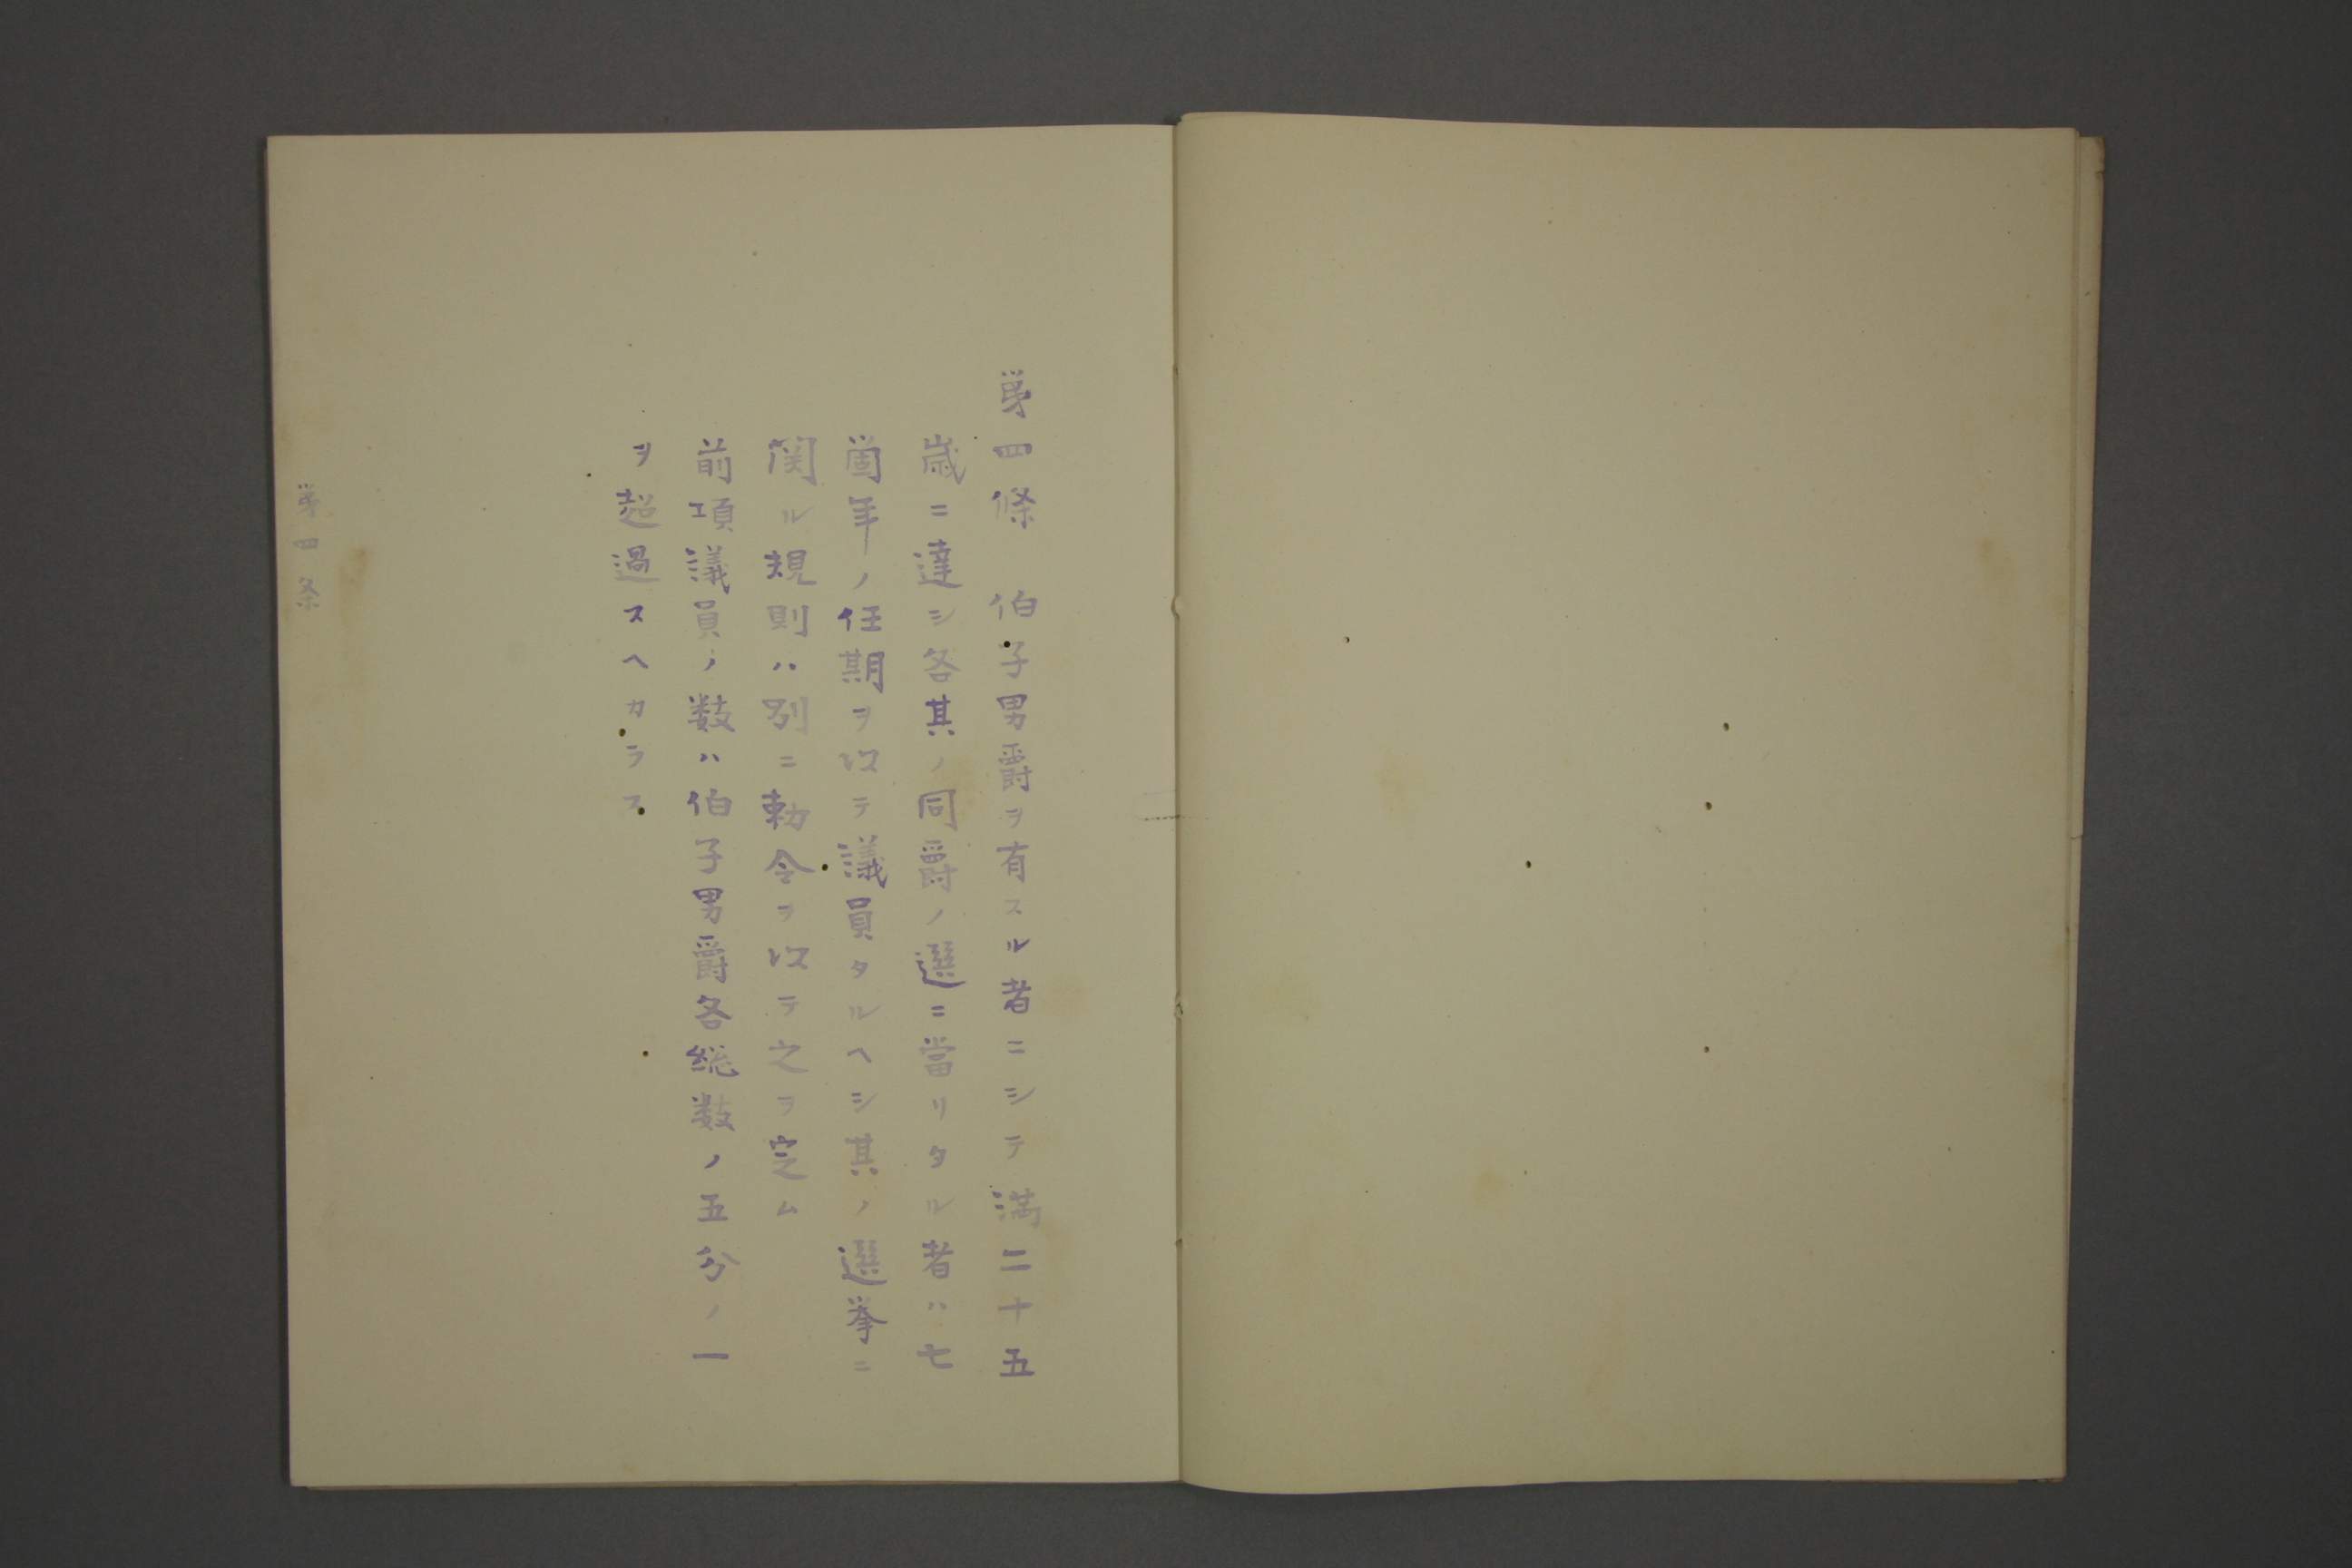 第四條　伯子男爵ヲ有スル者ニシテ満二十五
歳ニ達シ各其ノ同爵ノ選ニ當リタル者ハ七
箇年ノ任期ヲ以テ議員タルヘシ其ノ選挙ニ
関ル規則ハ別ニ勅令ヲ以テ之ヲ定ム
前項議員ノ数ハ伯子男爵各総数ノ五分ノ一
ヲ超過スヘカラス
第四条